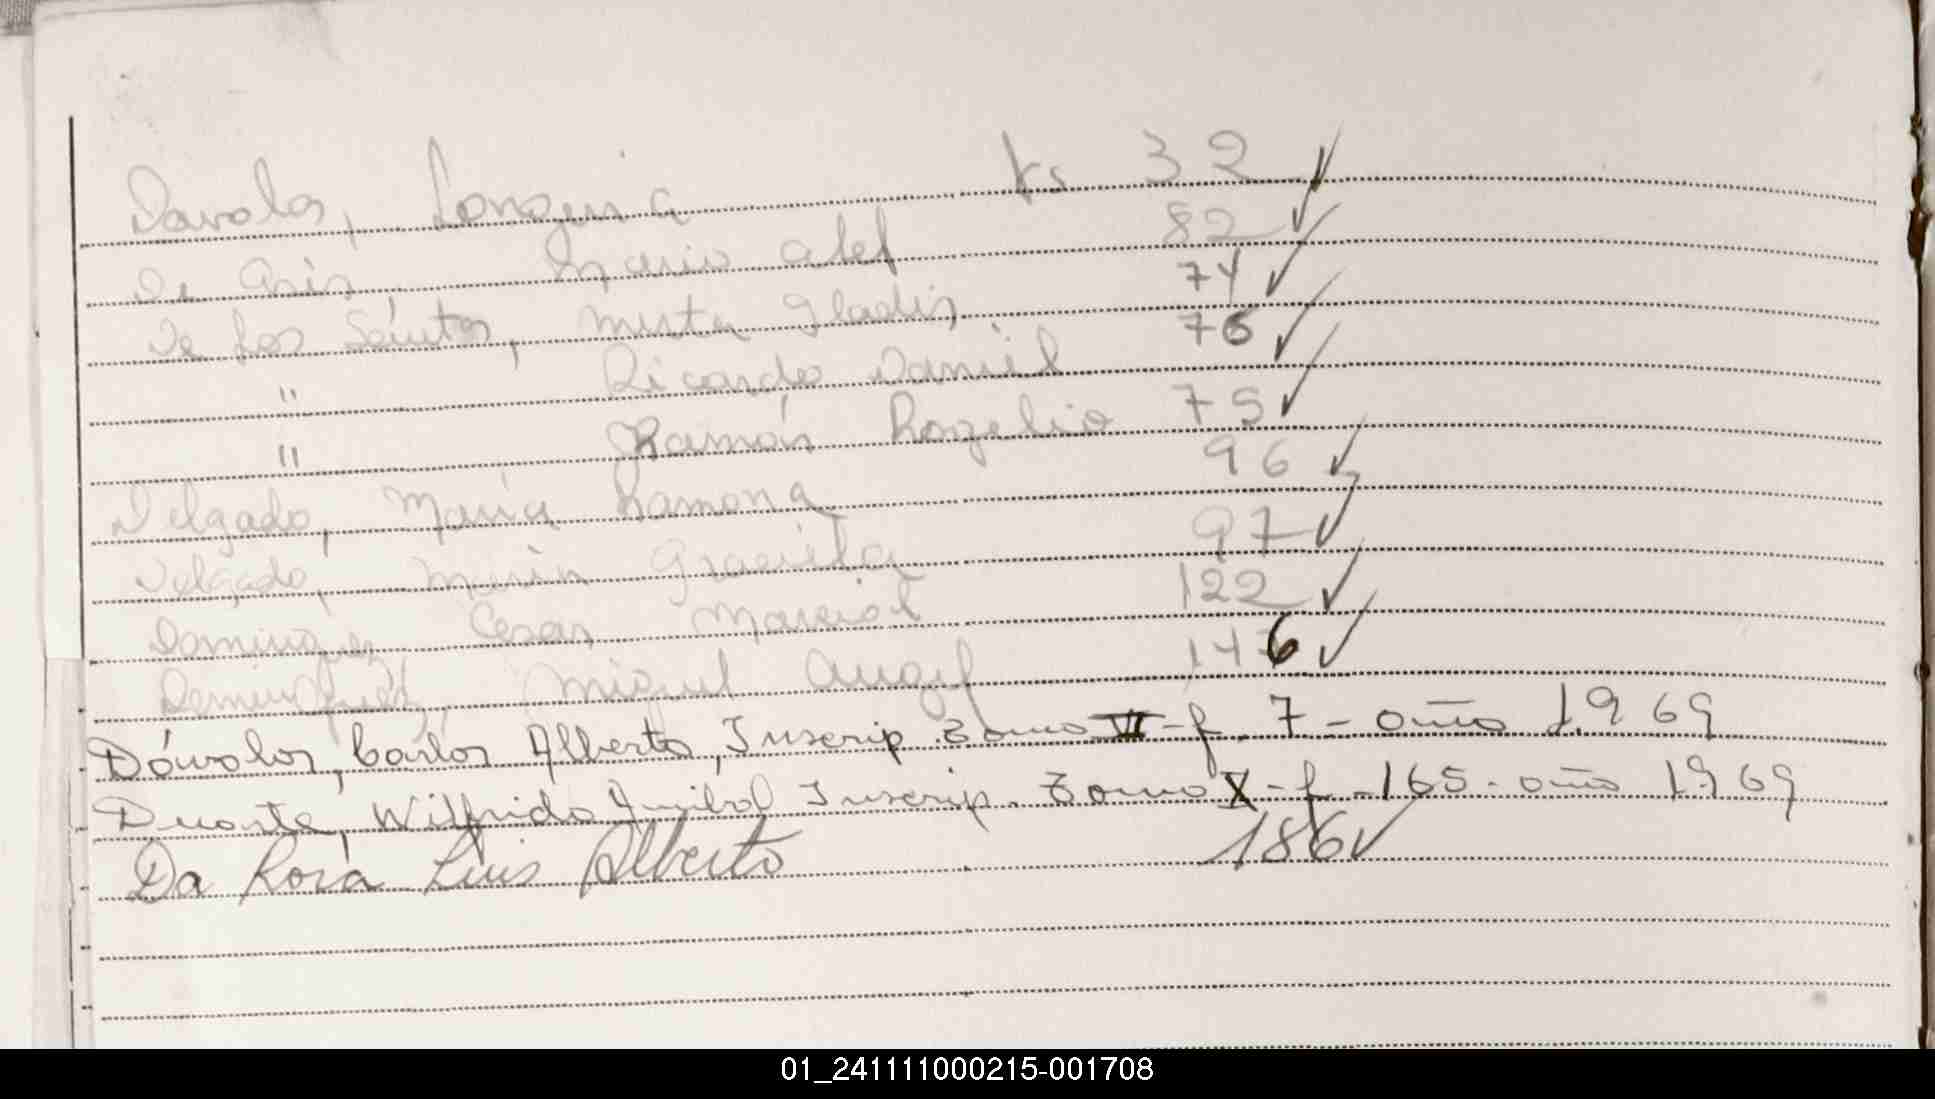 Davalos, Longina fs 32 ✓
De Asis, Mario Alef 82 ✓
De los Santos, Mirta Gladis 74 ✓
" Ricardo Daniel 76 ✓
" Ramón Rogelio 75 ✓
Delgado, María Ramona 96 ✓
Delgado, María Graciela 97 ✓
Dominguez Cesar Marcial 122 ✓
Dominguez, Miguel Angel 146 ✓
Dávalos, Carlos Alberto, Inscrip. Tomo VI - f. 7 - año 1969
Duarte, Wilfrido Anibal Inscrip. Tomo X - f - 165 - año 1969
Da Rosa Luis Alberto 186 ✓
01_241111000215-001708